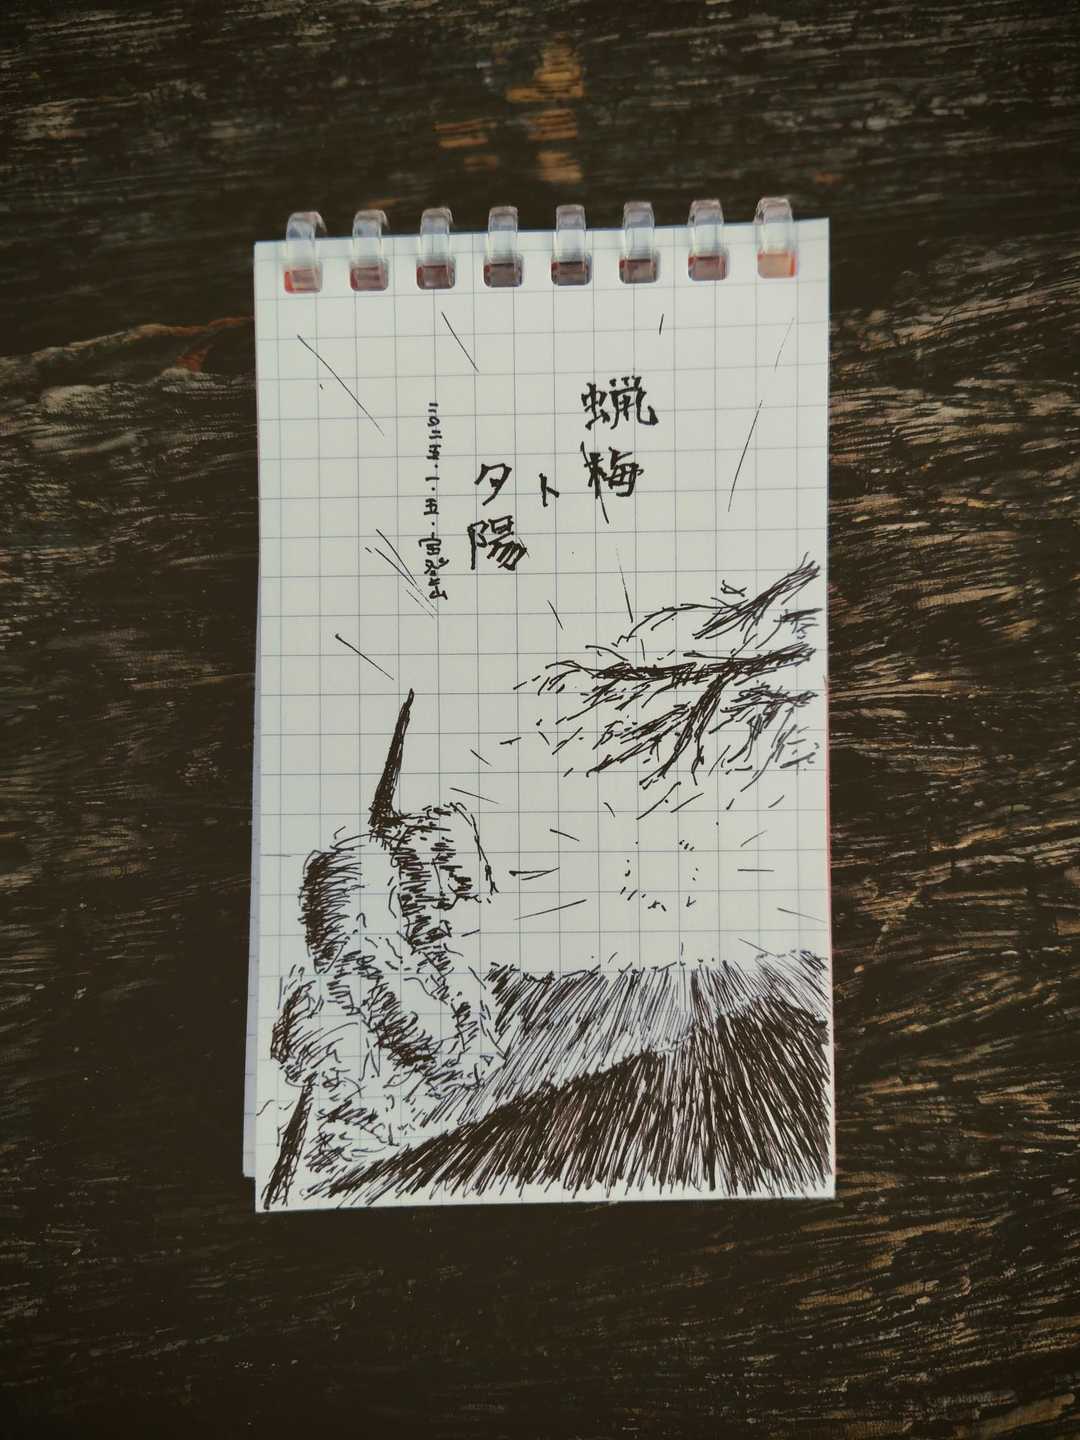 蝋梅
ト
夕陽
二〇二五・一・五・宝登山